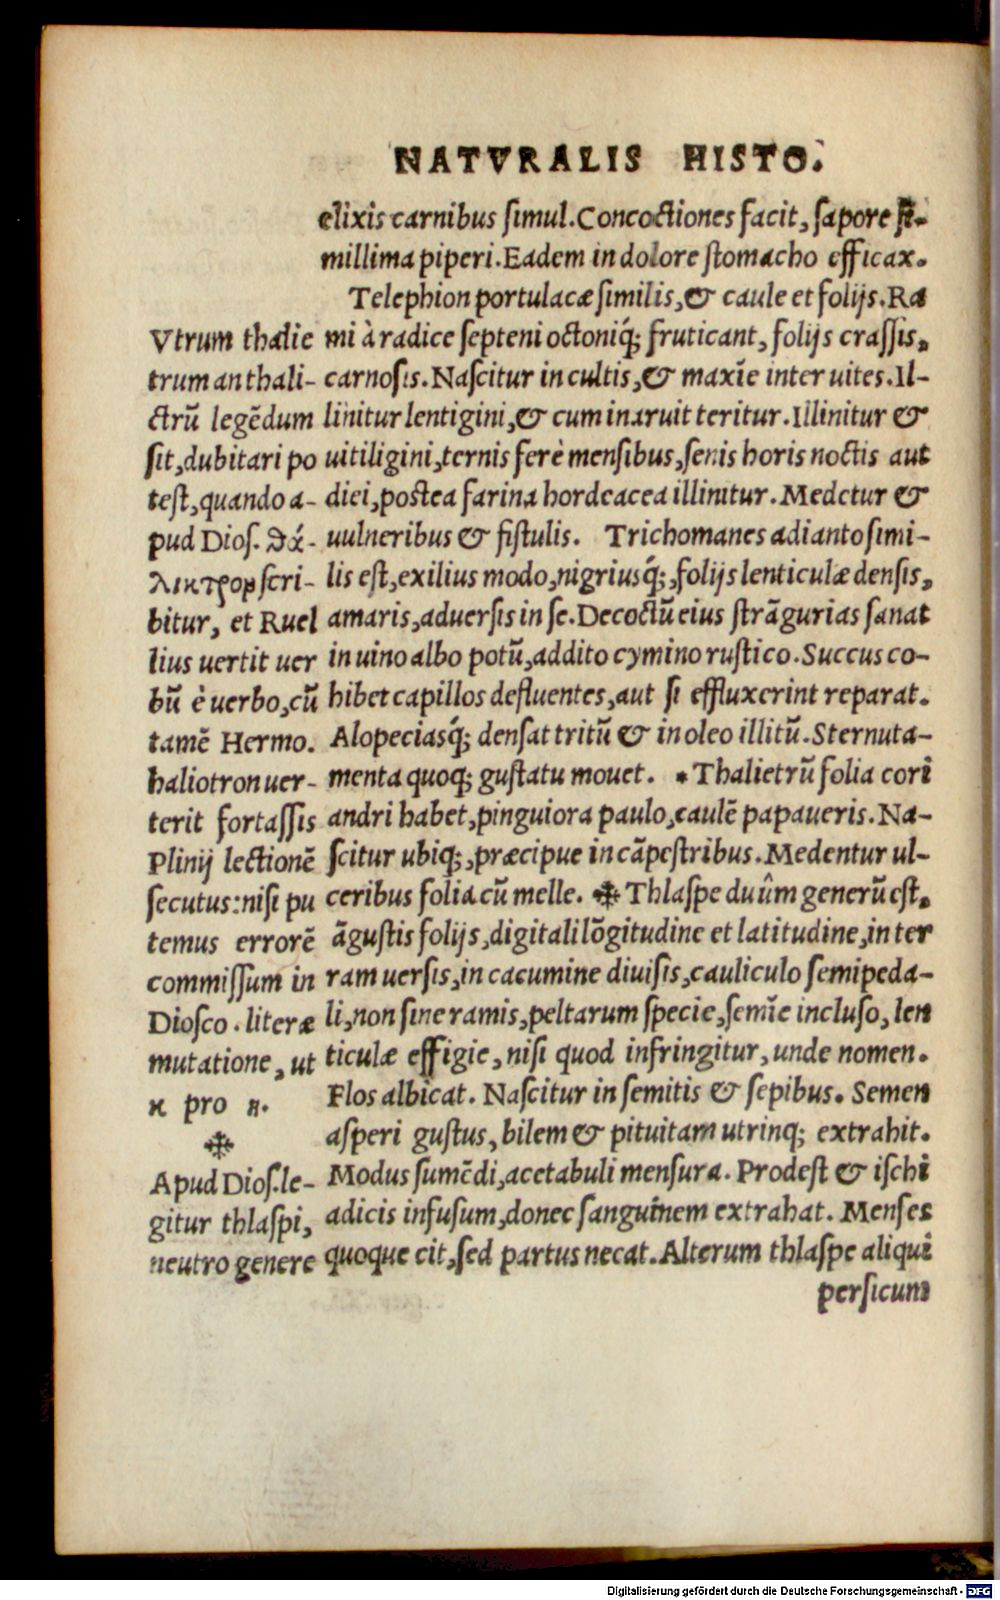 NATVRALIS HISTO.
elixis carnibus simul. Concoctiones facit, sapore si-
millima piperi. Eadem in dolore stomacho efficax.
Telephion portulacæ similis, & caule et folijs. Ra
mi à radice septeni octoniq́; fruticant, folijs crassis,
carnosis. Nascitur in cultis, & maxīe inter uites. Il-
linitur lentigini, & cum inaruit teritur. Illinitur &
uitiligini, ternis ferè mensibus, senis horis noctis aut
diei, postea farina hordeacea illinitur. Medetur &
uulneribus & fistulis. Trichomanes adianto simi-
lis est, exilius modo, nigriusq́;, folijs lenticulæ densis,
amaris, aduersis in se. Decoctū eius strāgurias sanat
in uino albo potū, addito cymino rustico. Succus co-
hibet capillos defluentes, aut si effluxerint reparat.
Alopeciasq́; densat tritū & in oleo illitū. Sternuta-
menta quoq; gustatu mouet. * Thalietrū folia cori
andri habet, pinguiora paulo, caulē papaueris. Na-
scitur ubiq;, præcipue in cāpestribus. Medentur ul-
ceribus folia cū melle. ✙ Thlaspe duûm generū est,
āgustis folijs, digitali lōgitudine et latitudine, in ter
ram uersis, in cacumine diuisis, cauliculo semipeda-
li, non sine ramis, peltarum specie, semīe incluso, len
ticulæ effigie, nisi quod infringitur, unde nomen.
Flos albicat. Nascitur in semitis & sepibus. Semen
asperi gustus, bilem & pituitam utrinq; extrahit.
Modus sumēdi, acetabuli mensura. Prodest & ischi
adicis infusum, donec sanguinem extrahat. Menses
quoque cit, sed partus necat. Alterum thlaspe aliqui
persicum
Vtrum thalie
trum an thali-
ctrū legēdum
sit, dubitari po
test, quando a-
pud Dios. θά-
λικτρον scri-
bitur, et Ruel
lius uertit uer
bū è uerbo, cū
tamē Hermo.
haliotron uer-
terit fortassis
Plinij lectionē
secutus: nisi pu
temus errorē
commissum in
Diosco. literæ
mutatione, ut
κ pro η.
✙
Apud Dios. le-
gitur thlaspi,
neutro genere
Digitalisierung gefördert durch die Deutsche Forschungsgemeinschaft - DFG